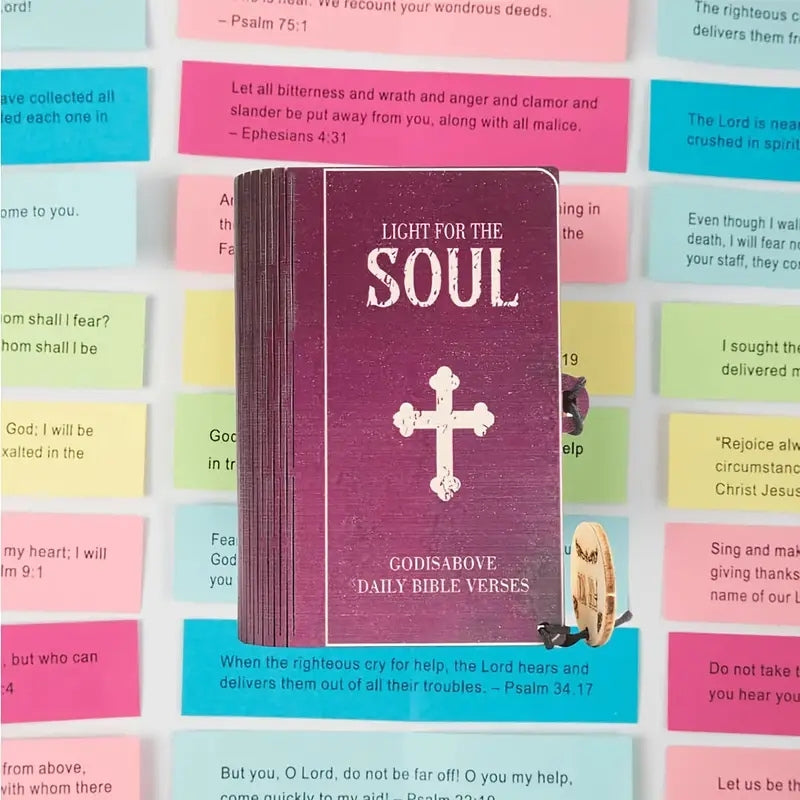 ord!
We recount your wondrous deeds.
– Psalm 75:1
The righteous c
delivers them fr
ave collected all
led each one in
Let all bitterness and wrath and anger and clamor and
slander be put away from you, along with all malice.
– Ephesians 4:31
The Lord is near
crushed in spirit
ome to you.
An
th
Fa
ning in
the
Even though I wal
death, I will fear no
your staff, they co
LIGHT FOR THE
SOUL
GODISABOVE
DAILY BIBLE VERSES
om shall I fear?
hom shall I be
19
I sought the
delivered m
God; I will be
xalted in the
God
in tr
elp
"Rejoice alw
circumstanc
Christ Jesus
my heart; I will
lm 9:1
Fea
God
you
Sing and mak
giving thanks
name of our L
, but who can
:4
When the righteous cry for help, the Lord hears and
delivers them out of all their troubles. – Psalm 34.17
Do not take t
you hear you
from above,
with whom there
But you, O Lord, do not be far off! O you my help,
come quickly to my aid! – Psalm 22:19
Let us be th